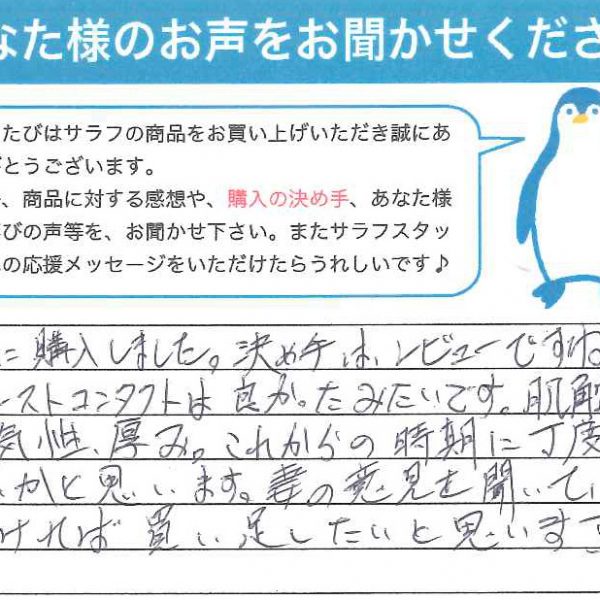 なた様のお声をお聞かせくださ
たびはサラフの商品をお買い上げいただき誠にあ
がとうございます。
、商品に対する感想や、購入の決め手、あなた様
びの声等を、お聞かせ下さい。またサラフスタッ
の応援メッセージをいただけたらうれしいです♪
に購入しました。決め手は、レビューですね。
ーストコンタクトは良かったみたいです。肌触
気性、厚み。これからの時期に丁度
いかと思います。妻の意見を聞いてい
ければ買い足したいと思います